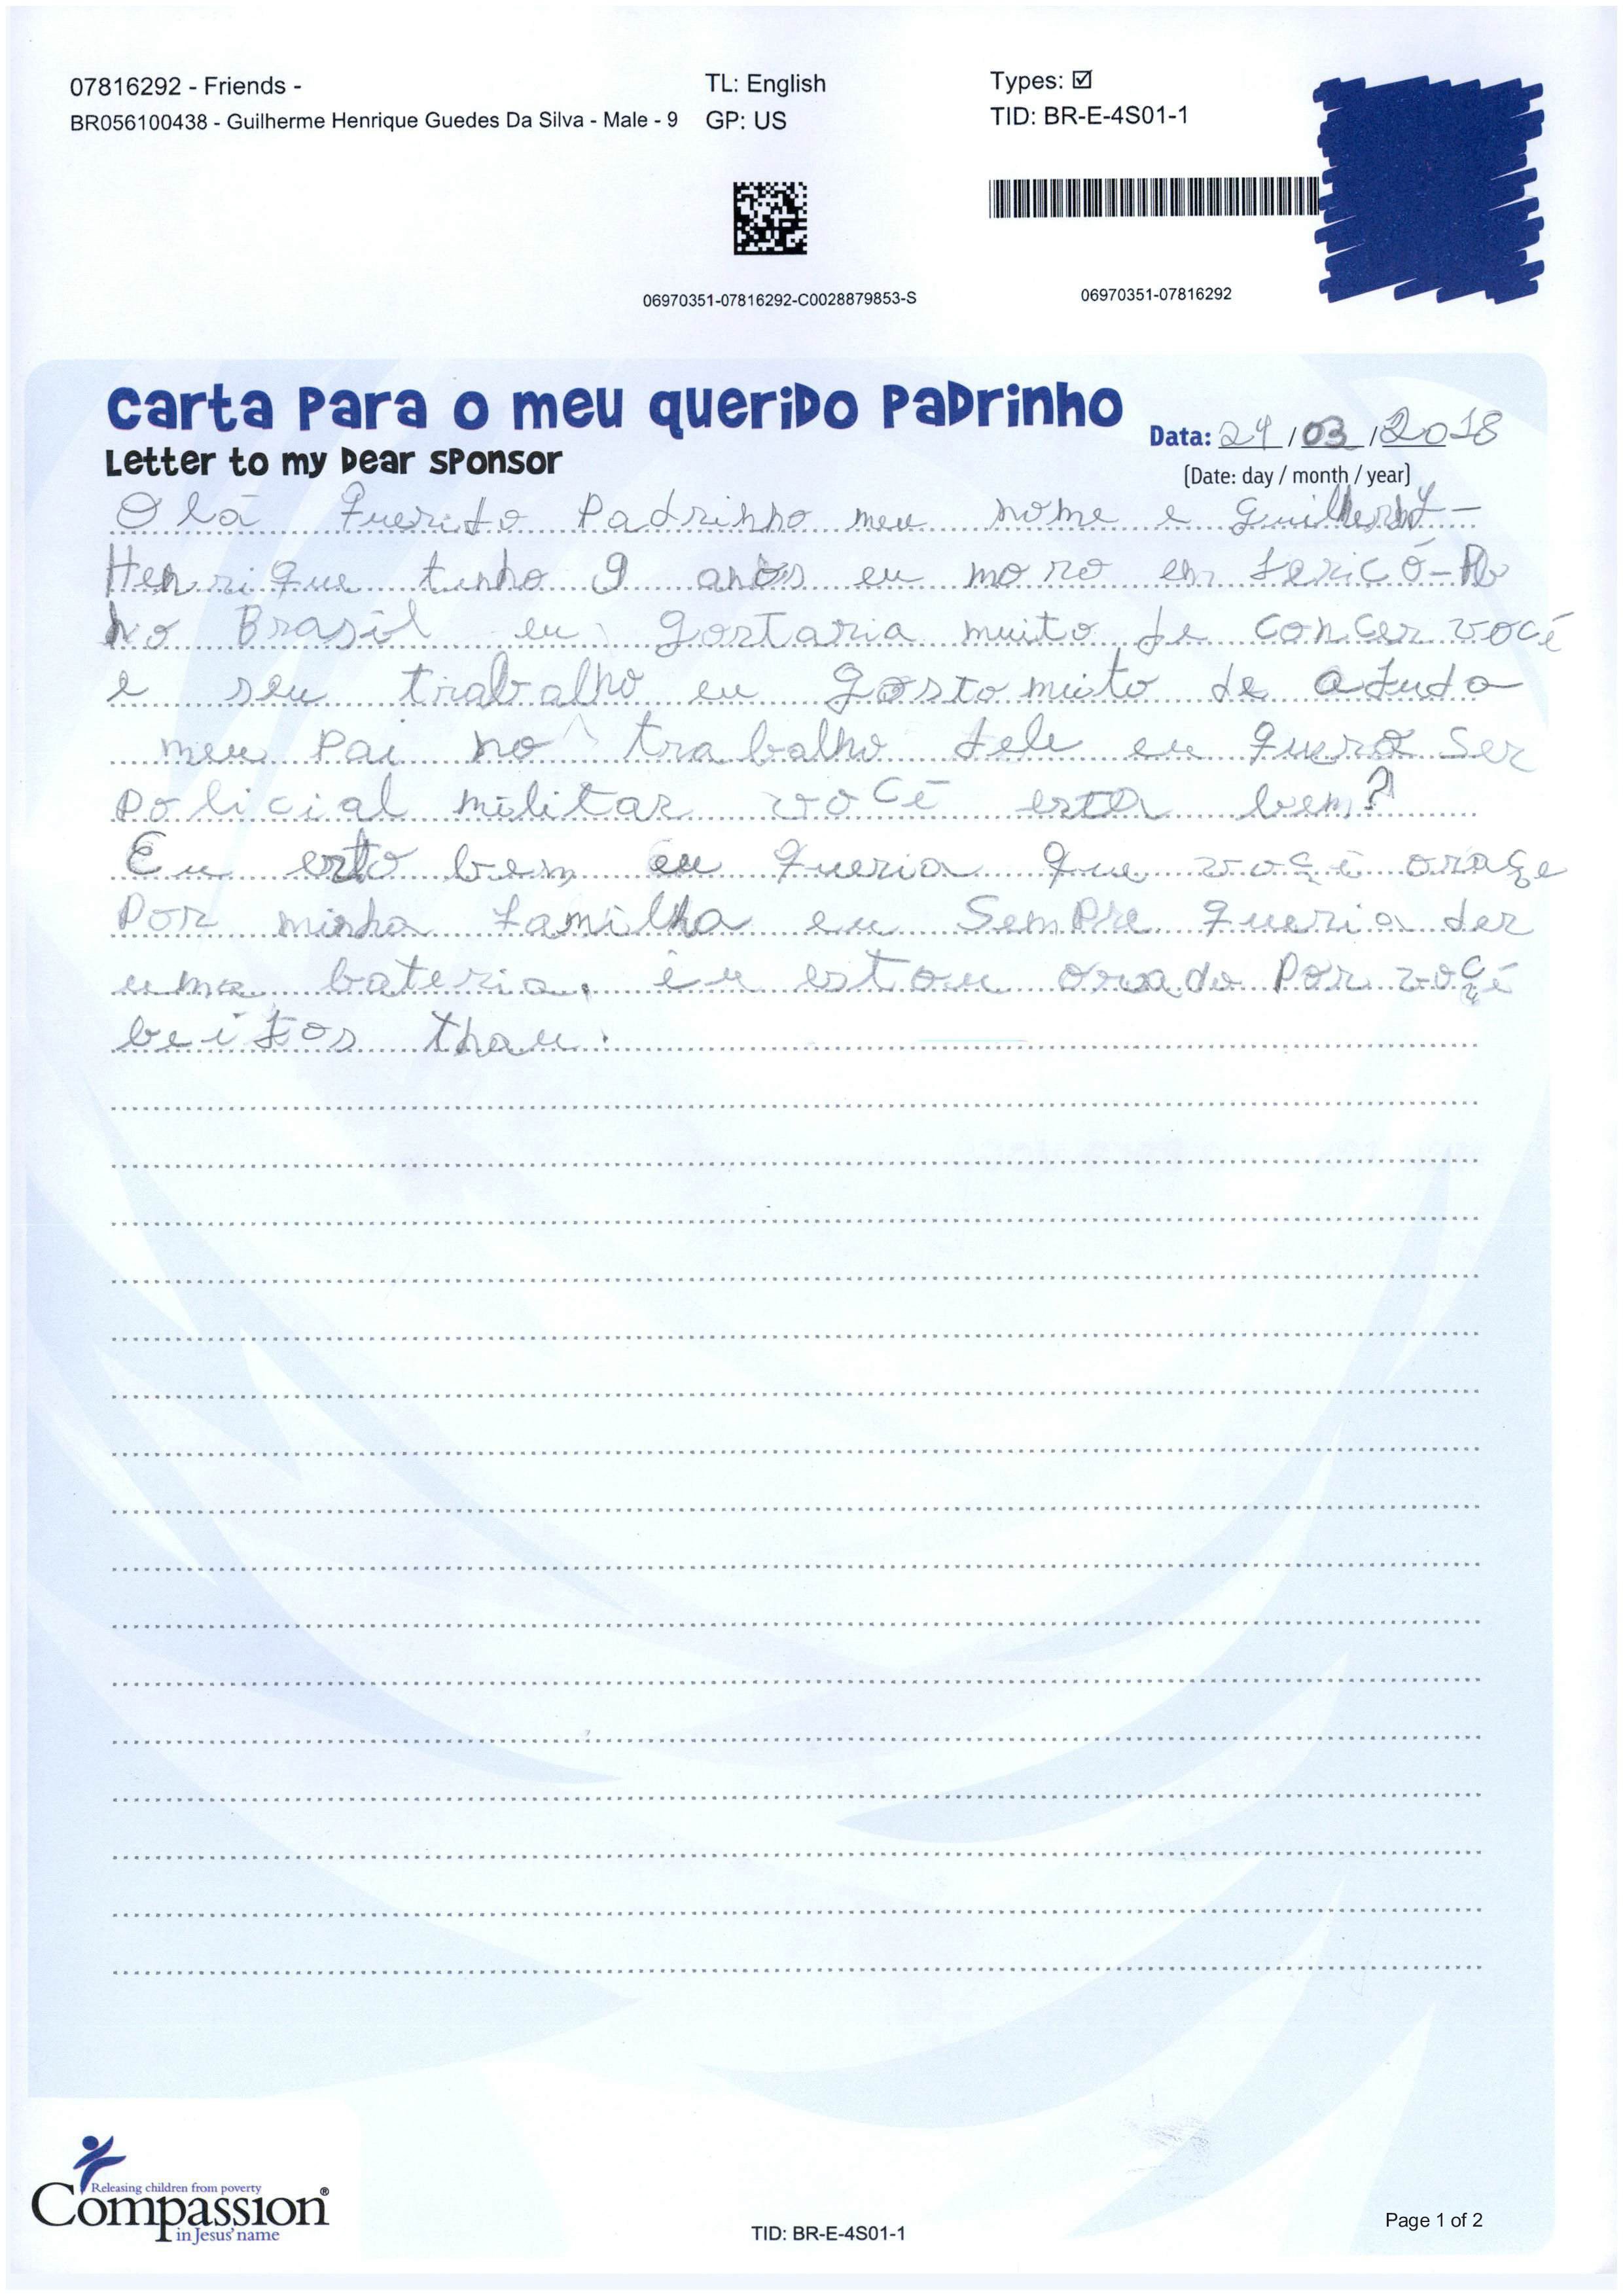 07816292 - Friends -
BR056100438 - Guilherme Henrique Guedes Da Silva - Male - 9
TL: English
GP: US
Types: ☑
TID: BR-E-4S01-1
06970351-07816292-C0028879853-S
06970351-07816292
Carta Para o meu querido Padrinho
Letter to my Dear Sponsor
Data: 29/03/2018
(Date: day / month / year)
Olá querido Padrinho meu nome e
Henrique tenho 9 anos eu moro em Jericó-Pb
no Brasil eu gostaria muito de concer você
e seu trabalho eu gosto muito de ajuda
meu Pai no trabalho dele eu quero ser
Policial militar você esta bem?
Eu esto bem eu queria que você oraçe
Por minha familha eu Sempre queria der
uma bateria. eu estou orado Por você
beijos thau.
Releasing children from poverty
Compassion®
in Jesus' name
TID: BR-E-4S01-1
Page 1 of 2